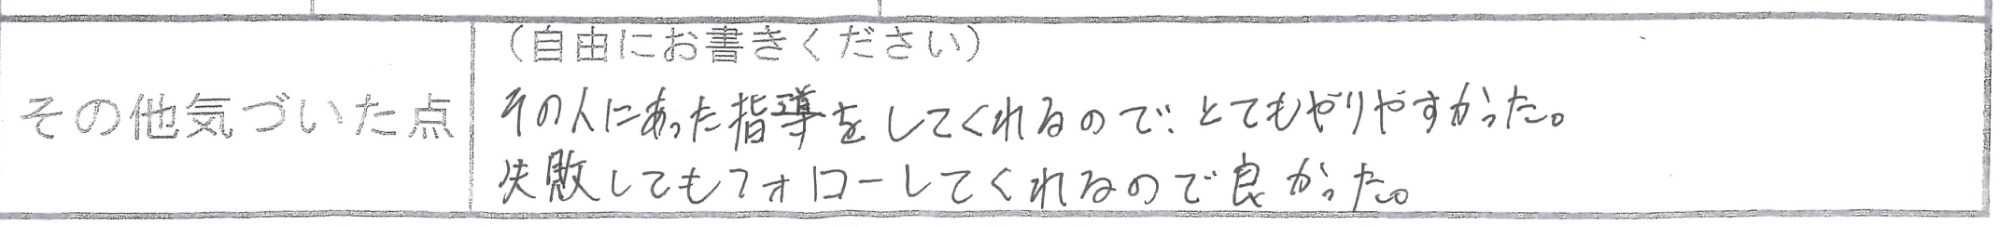 （自由にお書きください）
その他気づいた点
その人にあった指導をしてくれるので、とてもやりやすかった。
失敗してもフォローしてくれるので良かった。